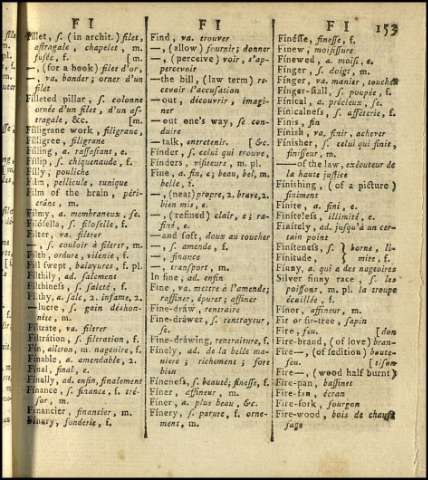 F I
F I
F I 153
Fillet, s. (in archit.) filet,
astragale, chapelet, m.
fusée, f. [m.
—, (for a book) filet d'or,
—, va. bander; orner d'un
filet
Filleted pillar, s. colonne
ornée d'un filet, d'un as-
tragale, &c. [m.
Filligrane work, filigrane,
Filigree, filigrane
Filling, a. rassasiant, e.
Fillip, s. chiquenaude, f.
Filly, pouliche
Film, pellicule, tunique
Film of the brain, péri-
crâne, m.
Filmy, a. membraneux, se.
Filosella, s. filoselle, f.
Filter, va. filtrer
—, s. couloir à filtrer, m.
Filth, ordure, vilenie, f.
Filth swept, balayures, f. pl.
Filthily, ad. salement
Filthiness, s. saleté, f.
Filthy, a. sale, 2. infame, 2.
—lucre, s. gain déshon-
nête, m.
Filtrate, va. filtrer
Filtration, s. filtration, f.
Fin, aileron, m. nageoire, f.
Finable, a. amendable, 2.
Final, final, e.
Finally, ad. enfin, finalement
Finance, s. finance, f. tré-
sor, m.
Financier, financier, m.
Finary, fonderie, f.
Find, va. trouver
—, (allow) fournir; donner
—, (perceive) voir, s'ap-
percevoir
—the bill, (law term) re-
cevoir l'accusation
—out, découvrir, imagi-
ner
—out one's way, se con-
duire
—talk, entretenir. [&c.
Finder, s. celui qui trouve,
Finders, visiteurs, m. pl.
Fine, a. fin, e; beau, bel, m.
belle, f.
—, (neat) propre, 2. brave, 2.
bien mis, e.
—, (refined) clair, e; ra-
finé, e.
—and soft, doux au toucher
—, s. amende, f.
—, finance
—, transport, m.
In fine, ad. enfin
Fine, va. mettre à l'amende;
raffiner, épurer; affiner
Fine-draw, rentraire
Fine-drawer, s. rentrayeur,
se.
Fine-drawing, rentraiture, f.
Finely, ad. de la belle ma-
niere; richement; fort
bien
Fineness, s. beauté; finesse, f.
Finer, affineur, m.
Finer, a. plus beau, &c.
Finery, s. parure, f. orne-
ment, m.
Finesse, finesse, f.
Finew, moisissure
Finewed, a. moisi, e.
Finger, s. doigt, m.
Finger, va. manier, toucher
Finger-stall, s. poupée, f.
Finical, a. précieux, se.
Finicalness, s. afféterie, f.
Finis, fin
Finish, va. finir, achever
Finisher, s. celui qui finit,
finisseur, m.
—of the law, exécuteur de
la haute justice
Finishing, (of a picture)
finiment
Finite, a. fini, e.
Finiteless, illimité, e.
Finitely, ad. jusqu'à un cer-
tain point
Finiteness, s. } borne, li-
Finitude, } mite, f.
Finny, a. qui a des nageoires
Silver finny race, s. les
poissons, m. pl. la troupe
écaillée, f.
Finor, affineur, m.
Fir or fir-tree, sapin
Fire, feu. [don
Fire-brand, (of love) bran-
Fire—, (of sedition) boute-
feu. [tison
Fire—, (wood half burnt)
Fire-pan, bassinet
Fire-fan, écran
Fire-fork, fourgon
Fire-wood, bois de chauf-
fage